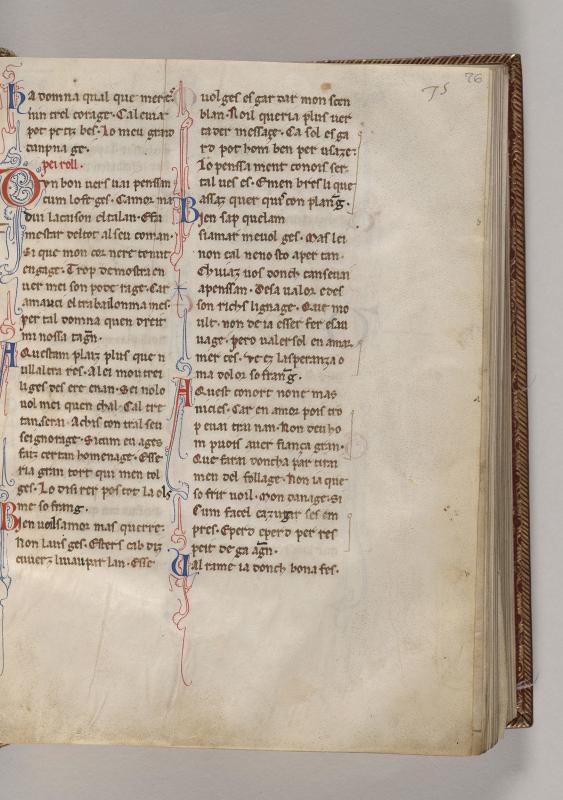 75 76
Ha domna qual que merce.
iun crel corage. Cal cuia
por petiz bes. Lo meu grand
tanpna ge.
pei roll.
Dun bon vers vai penssan
cum lo fez ges. Camor ma
dui lacuson el talan. Esta
mestar deltot al seu coman.
Si que mon cor ne retenut
engage. Trop demostra en
ver mei son pode rage. Car
amauci el trabailonma mes
per tal domna quen dreit
mi nossa tagn.
Aquestam plaiz plus que n
ullaltra res. A lei mou trei
liges des ere enan. Sei nolo
vol mei quen chal. Cal tre
tan sera. Achis con tral seu
seignorage. Si cum eu ages
faiz certan homenage. Esse
ria gran tort qui men tol
ges. Lo disirer pos tot la ols
me so frang.
Ben voilsamor mas querre
Non laus ges. Esters cab diz
cuverz livau par lan. Esse
uol ges es gar dar mon sen
blan. Noil queria plus ver
tader message. Ca sol es ga
rd pot hom ben per usaze.
Lo penssa ment conois ser
tal ves es. E men bres li que
assaz quer qui con plang.
Ben sap quelam
siamar me vol ges. Mas lei
non cal neno sto aper tan.
Chuiaz vos donch canse vai
apenssan. De sa valor e des
son richs lignage. Que mo
ult. non de ia esser fer esau
vage. pero valer sol en amar
mer ces. de ez la speranza o
ma dolor so frang.
Aquest conort none mas
nicies. Car en amor pois tro
p enai trau nan. Non deu ho
m puois auer fianca gran.
Que farai doncha par tirai
men del follage. Non ia que
so frir voil. Mon danage. Si
Cum facel cazugar ses em
pres. E per d e per d per res
peit de ga agn.
Tal rame ia donch bona fes.